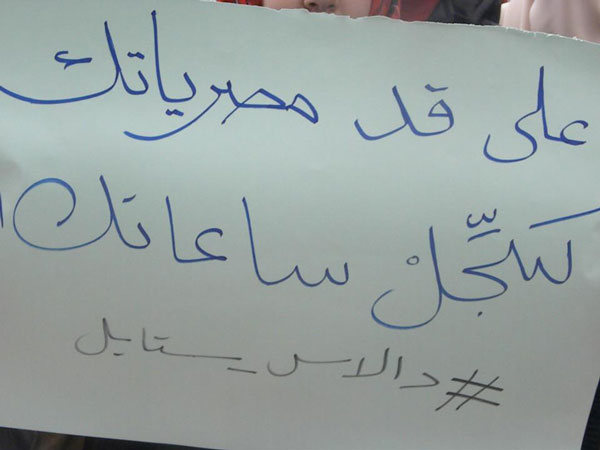 على قد مصرياتك
سَجِّلْ ساعاتك!
#دالاس_ستايل